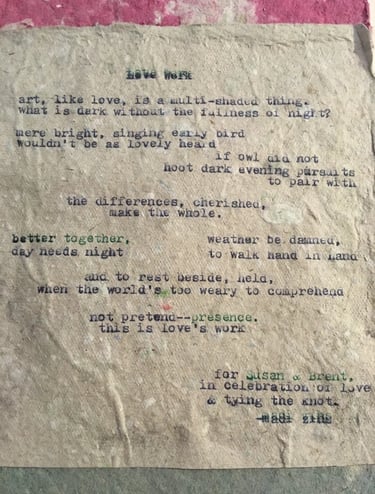 Love Work
art, like love, is a multi-shaded thing.
what is dark without the fullness of night?
mere bright, singing early bird
wouldn't be as lovely heard
if owl did not
hoot dark evening pursuits
to pair with
the differences, cherished,
make the whole.
better together,
day needs night
weather be damned,
to walk hand in hand
and to rest beside, held,
when the world's too weary to comprehend
not pretend--presence.
this is love's work
for Susan & Brent,
in celebration of love
& tying the knot.
-madi zins